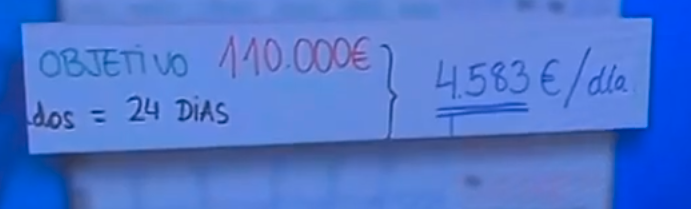 OBJETIVO 110.000€
dos = 24 DiAS
4.583 €/día